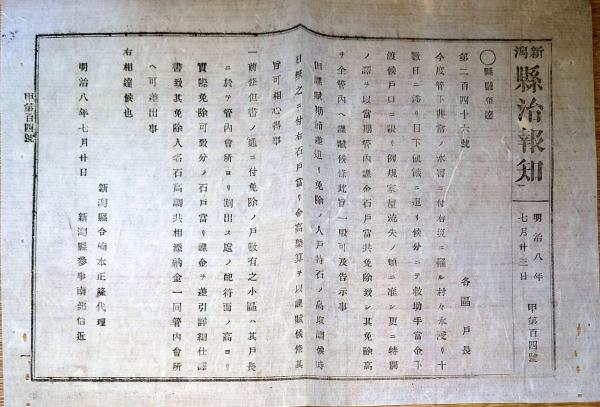 新潟縣治報知
明治八年
七月廿三日
甲第百四號
〇縣廳布達
第二百四十六號
各區 戸長
今度管下非常ノ水害ニ付右災ニ罹ル村々水浸リ十
數日ニ渉リ目下飢餓ニ迫リ候分ニテ救助手當金下
渡候戸口ニ限リ御規家屋流失ノ類ニ准シ更ニ特別
ノ譯ヲ以當期管内課金石戸當共免除致シ其免除高
ヲ全管内ヘ課賦候條此旨一般可及告示事
但課賦期節差迫リ免除ノ人戸持石ノ高取調候時
日無之ニ付右石戸當リ金高槩算ヲ以課賦候條其
旨可相心得事
一前條但書ノ通ニ付免除ノ戸數有之小區ハ其戸長
ニ於テ管内會所ヨリ割出ス處ノ配符面ノ高ヨリ
實際免除可致分ノ石戸當リ課金ヲ差引詳細仕譯
書致其免除人名石高調共相添納金一同管内會所
ヘ可差出事
右相達候也
明治八年七月廿日
新潟縣令楠本正隆代理
新潟縣參事南部信近
甲第百四號